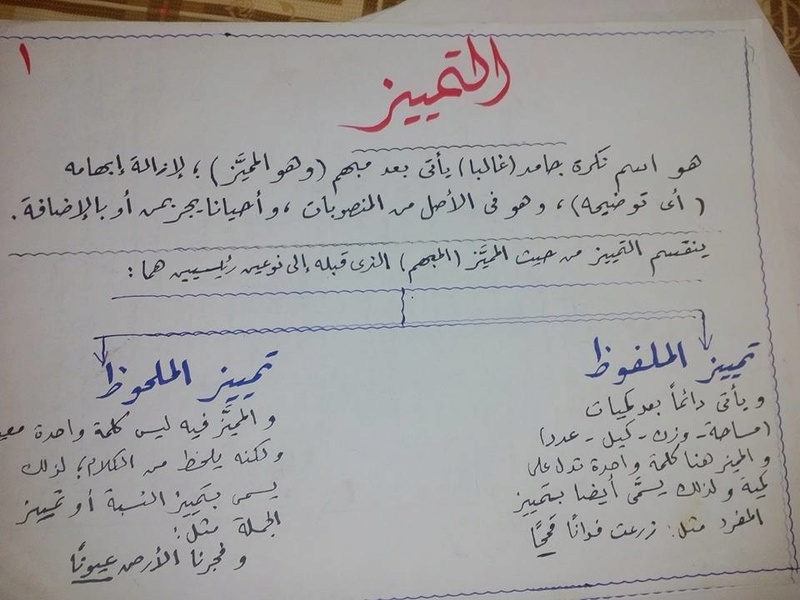 ١
التمييز
هو اسم نكرة جامد (غالبا) يأتى بعد مبهم (وهو المميَّز) ؛ لإزالة إبهامه
( أى توضيحه ) ، وهو فى الأصل من المنصوبات ، وأحيانا يجر بمن أو بالإضافة .
ينقسم التمييز من حيث المميَّز (المبهم) الذى قبله إلى نوعين رئيسيين هما :
تمييز الملفوظ
و يأتى دائماً بعد كميات
(مساحة - وزن - كيل - عدد)
و المميز هنا كلمة واحدة تدل على
كمية و لذلك يسمَّى أيضا بتمييز
المفرد مثل : زرعت فدانًا قمحًا
تمييز الملحوظ
و المميَّز فيه ليس كلمة واحدة
ولكنه يلحظ من الكلام ؛ لذلك
يسمى بتمييز النسبة أو تمييز
الجملة مثل :
و فجرنا الأرض عيونًا